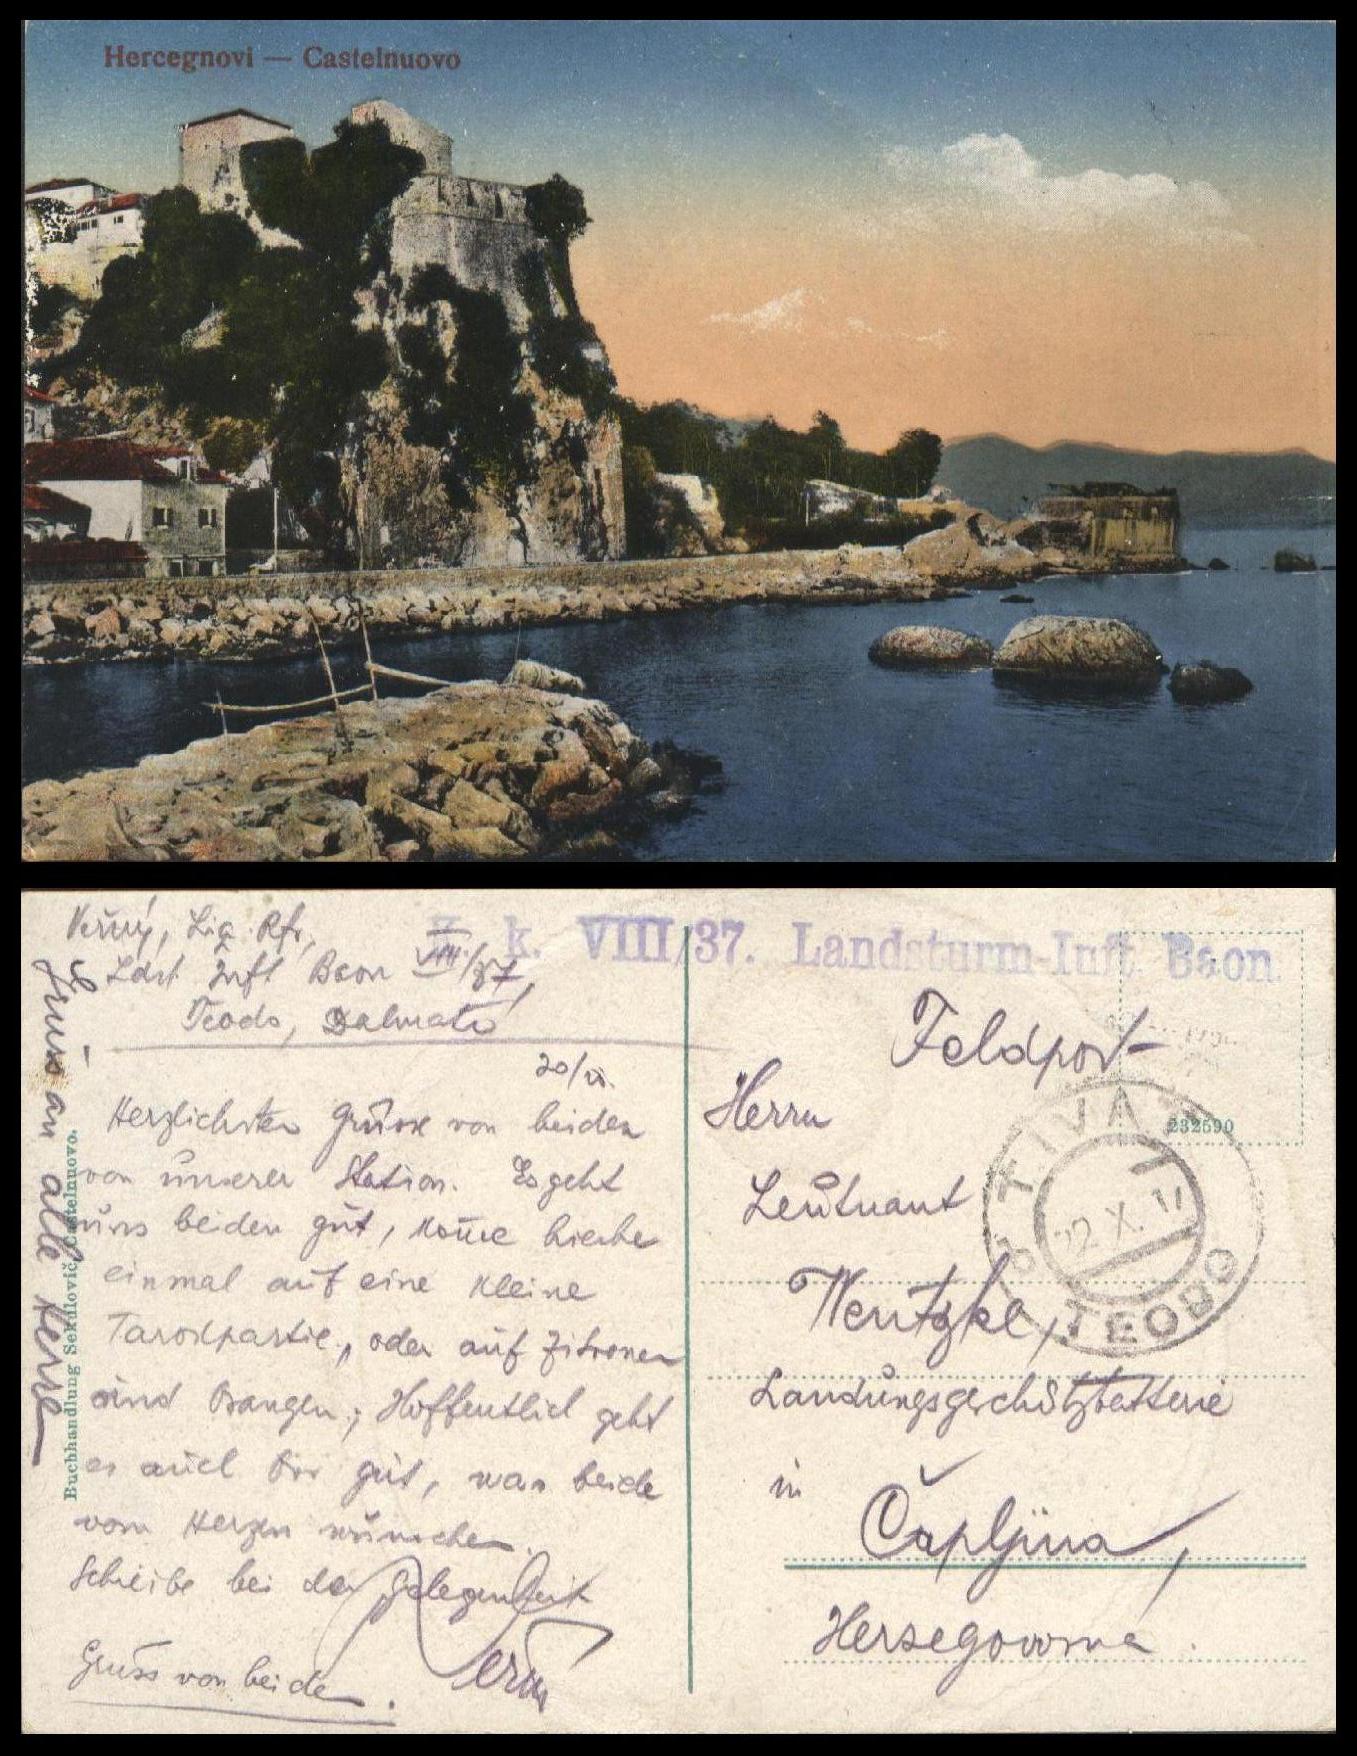 Hercegnovi — Castelnuovo
K. k. VIII/37. Landsturm-Inft. Baon.
Verný, Lig. Rfr,
Ldst Inft Baon VIII/37,
Teodo, Dalmatÿ
20/XI.
Herzlichsten Grüsse von beiden
von unserer Station. Es geht
uns beiden gut,
einmal auf eine kleine
Tarockpartie, oder auf Zitronen
und Orangen; Hoffentlich geht
es auch Dir gut, was beide
vom Herzen wünschen.
Schreibe bei der Gelegenheit
Gruss von beiden.
Gruss an alle Herrn
Buchhandlung Sekulović, Castelnuovo.
Feldpost
232590
TIVAT
22 X. 17
TEODO
Herrn
Leutnant
Wentzke,
Landungsgeschützbatterie
in
Čapljina,
Herzegowina.